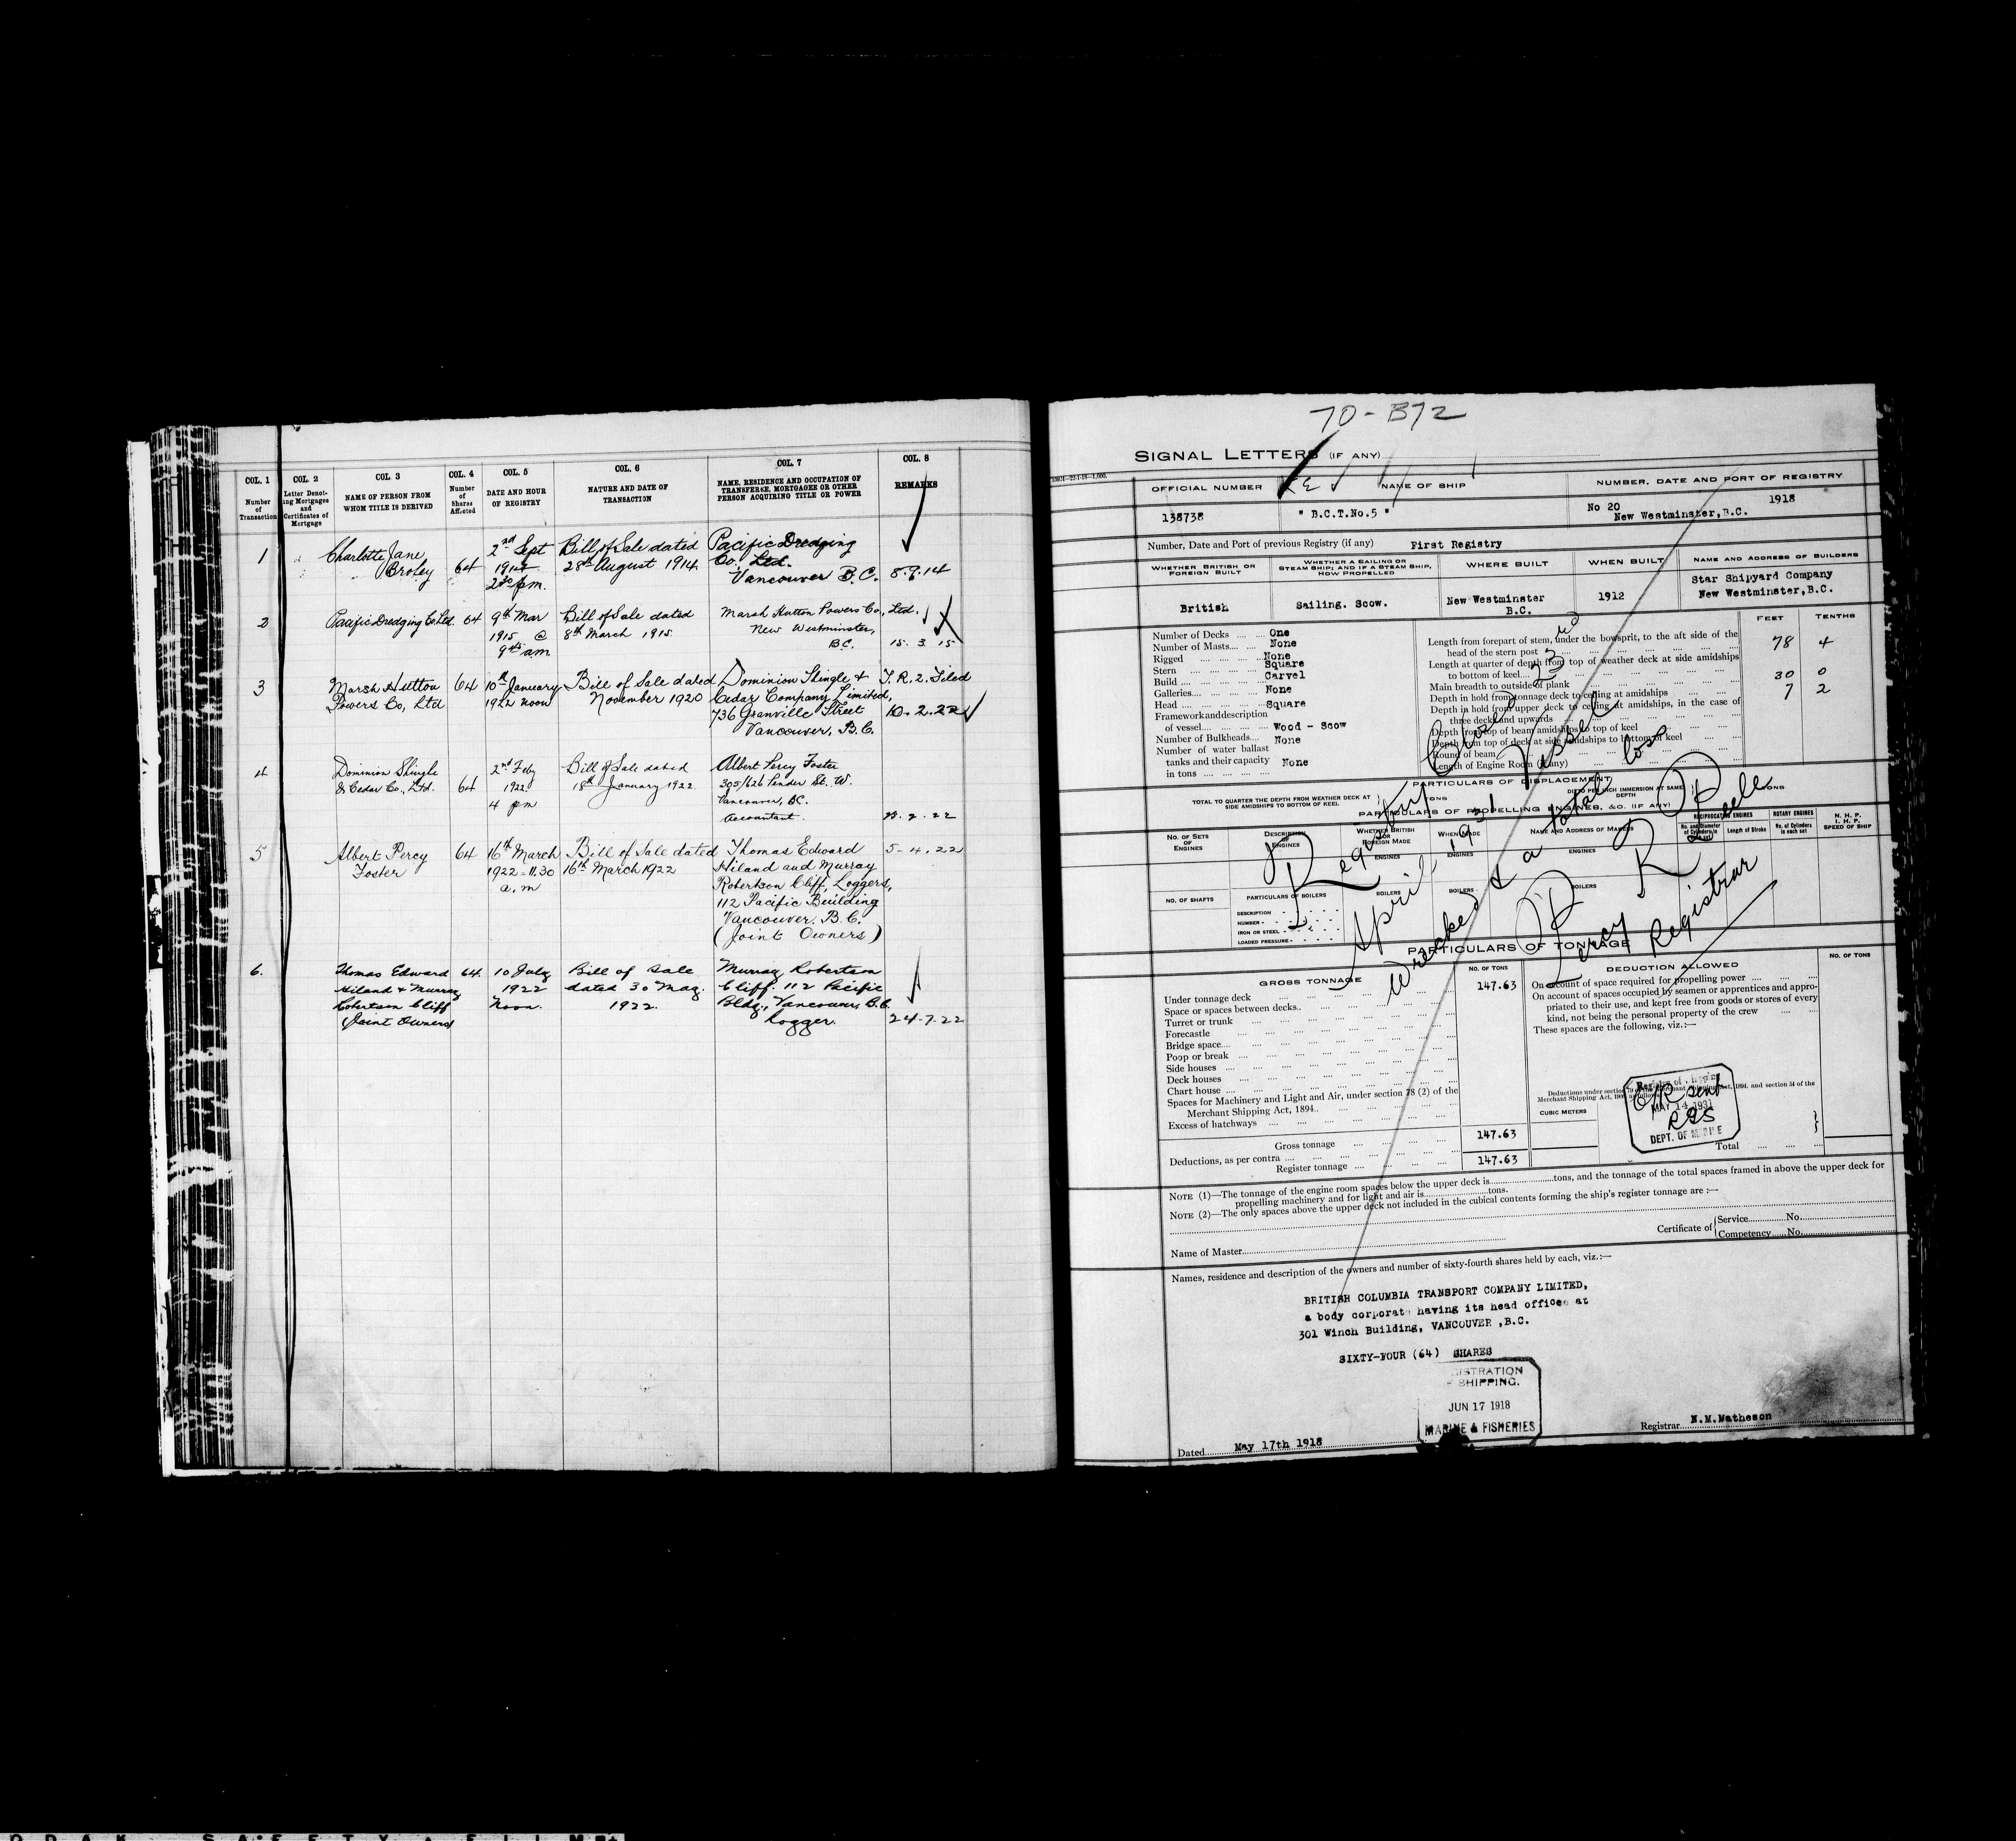 COL. 1
Number
of
Transaction
COL. 2
Letter Denot-
ing Mortgages
and
Certificates of
Mortgage
COL. 3
NAME OF PERSON FROM
WHOM TITLE IS DERIVED
COL. 4
Number
of
Shares
Affected
COL. 5
DATE AND HOUR
OF REGISTRY
COL. 6
NATURE AND DATE OF
TRANSACTION
COL. 7
NAME, RESIDENCE AND OCCUPATION OF
TRANSFEREE, MORTGAGEE OR OTHER
PERSON ACQUIRING TITLE OR POWER
COL. 8
REMARKS
1
Charlotte Jane
Broley
64
2nd Sept
1914
2.30 p.m.
Bill of Sale dated
28th August 1914
Pacific Dredging
Co. Ltd.
Vancouver B.C.
8.9.14
2
Pacific Dredging Co. Ltd.
64
9th Mar
1915 @
9.45 a.m
Bill of Sale dated
8th March 1915
Marsh Hutton Powers Co, Ltd.
New Westminster,
B.C.
15.3.15
3
Marsh Hutton
Powers Co, Ltd
64
10th January
1922 noon
Bill of Sale dated
November 1920
Dominion Shingle &
Cedar Company Limited,
736 Granville Street
Vancouver, B.C.
T.R.2. Filed
10.2.22
4
Dominion Shingle
& Cedar Co., Ltd.
64
2nd Feby
1922
4 pm
Bill of Sale dated
18th January 1922
Albert Percy Foster
305/626 Pender St. W.
Vancouver, B.C.
Accountant.
5
Albert Percy
Foster
64
16th March
1922 - 11.30
a.m
Bill of Sale dated
16th March 1922
Thomas Edward
Hiland and Murray
Robertson Cliff, Loggers,
112 Pacific Building
Vancouver. B.C.
(Joint Owners)
5-4.22
6.
Thomas Edward
Hiland & Murray
Robertson Cliff
(Joint Owners)
64.
10 July
1922
Noon.
Bill of Sale
dated 30 May.
1922.
Murray Robertson
Cliff. 112 Pacific
Bldg., Vancouver, B.C.
Logger.
24.7.22
70-B72
SIGNAL LETTERS (IF ANY)
OFFICIAL NUMBER
138738
NAME OF SHIP
" B.C.T.No.5 "
NUMBER, DATE AND PORT OF REGISTRY
No 20
1918
New Westminster, B.C.
Number, Date and Port of previous Registry (if any) First Registry
WHETHER BRITISH OR
FOREIGN BUILT
British
WHETHER A SAILING OR
STEAM SHIP; AND IF A STEAM SHIP,
HOW PROPELLED
Sailing. Scow.
WHERE BUILT
New Westminster
B.C.
WHEN BUILT
1912
NAME AND ADDRESS OF BUILDERS
Star Shipyard Company
New Westminster, B.C.
Number of Decks One
Number of Masts None
Rigged None
Stern Square
Build Carvel
Galleries None
Head Square
Framework and description
of vessel Wood - Scow
Number of Bulkheads None
Number of water ballast
tanks and their capacity
in tons None
FEET TENTHS
Length from forepart of stem, under the bowsprit, to the aft side of the
head of the stern post 78 4
Length at quarter of depth from top of weather deck at side amidships
to bottom of keel
Main breadth to outside of plank 30 0
Depth in hold from tonnage deck to ceiling at amidships 7 2
Depth in hold from upper deck to ceiling at amidships, in the case of
three decks and upwards
Depth from top of beam amidships to top of keel
Depth from top of deck at side amidships to bottom of keel
Round of beam
Length of Engine Room (if any)
PARTICULARS OF DISPLACEMENT
TOTAL TO QUARTER THE DEPTH FROM WEATHER DECK AT
SIDE AMIDSHIPS TO BOTTOM OF KEEL
TONS
DITTO PER INCH IMMERSION AT SAME
DEPTH
TONS
PARTICULARS OF PROPELLING ENGINES, &C. (IF ANY)
NO. OF SETS
OF
ENGINES
DESCRIPTION
ENGINES
WHETHER BRITISH
OR
FOREIGN MADE
ENGINES
WHEN MADE
ENGINES
NAME AND ADDRESS OF MAKERS
ENGINES
RECIPROCATING ENGINES
No. and Diameter
of Cylinders in
each set
Length of Stroke
ROTARY ENGINES
No. of Cylinders
in each set
N. H. P.
I. H. P.
SPEED OF SHIP
NO. OF SHAFTS
PARTICULARS OF BOILERS
DESCRIPTION
NUMBER
IRON OR STEEL
LOADED PRESSURE
BOILERS
BOILERS
BOILERS
Registry Closed
23rd April, 1931 Vessel
Wrecked & a total loss
Percy R Peele
Registrar
PARTICULARS OF TONNAGE
GROSS TONNAGE
NO. OF TONS
Under tonnage deck 147.63
Space or spaces between decks
Turret or trunk
Forecastle
Bridge space
Poop or break
Side houses
Deck houses
Chart house
Spaces for Machinery and Light and Air, under section 78 (2) of the
Merchant Shipping Act, 1894
Excess of hatchways
Gross tonnage 147.63
Deductions, as per contra
Register tonnage 147.63
DEDUCTION ALLOWED
NO. OF TONS
On account of space required for propelling power
On account of spaces occupied by seamen or apprentices and appro-
priated to their use, and kept free from goods or stores of every
kind, not being the personal property of the crew
These spaces are the following, viz.:—
CUBIC METERS
MAY 14 1931
DEPT. OF MARINE
Total
NOTE (1)—The tonnage of the engine room spaces below the upper deck is tons, and the tonnage of the total spaces framed in above the upper deck for
propelling machinery and for light and air is tons.
NOTE (2)—The only spaces above the upper deck not included in the cubical contents forming the ship's register tonnage are :—
Name of Master
Certificate of
Service No.
Competency No.
Names, residence and description of the owners and number of sixty-fourth shares held by each, viz.:—
BRITISH COLUMBIA TRANSPORT COMPANY LIMITED,
a body corporate having its head office at
301 Winch Building, VANCOUVER ,B.C.
SIXTY-FOUR (64) SHARES
ISTRATION
SHIPPING.
JUN 17 1918
MARINE & FISHERIES
Dated May 17th 1918
Registrar N.M.Matheson